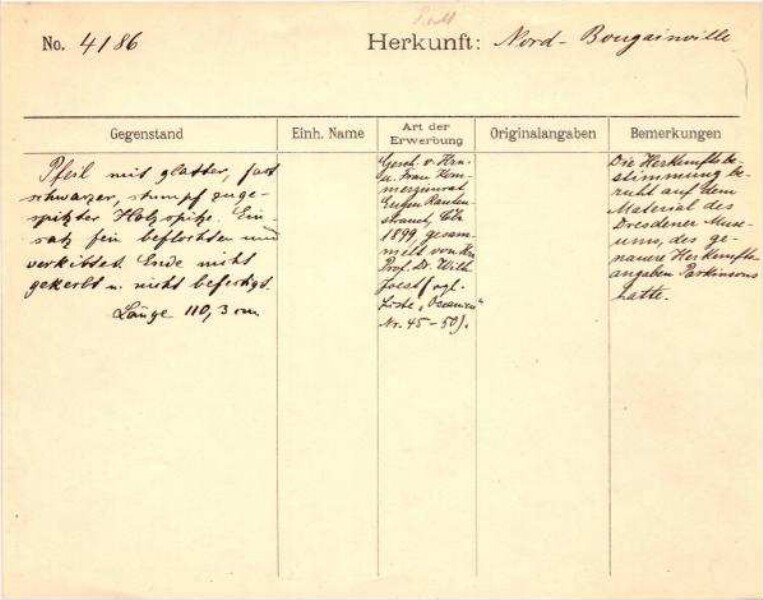 No. 4186
Herkunft: Nord-Bougainville
Gegenstand
Einh. Name
Art der
Erwerbung
Originalangaben
Bemerkungen
Pfeil mit glatter, fast
schwarzer, stumpf zuge-
spitzter Holzspitze. Ein-
satz fein beflochten und
verkittet. Ende nicht
gekerbt u. nicht befestigt.
Länge 110,3 cm
Gesch. v. Hrn.
u. Frau Kom-
merzienrat
Eugen Rauten-
strauch, Cöln
1899, gesam-
melt von Hrn
Prof. Dr. Wilh.
Joest (vgl.
Liste „Oceanien"
Nr. 45-50).
Die Herkunftsbe-
stimmung be-
ruht auf dem
Material des
Dresdener Muse-
ums, des ge-
nauere Herkunfts-
angaben Parkinsons
hatte.